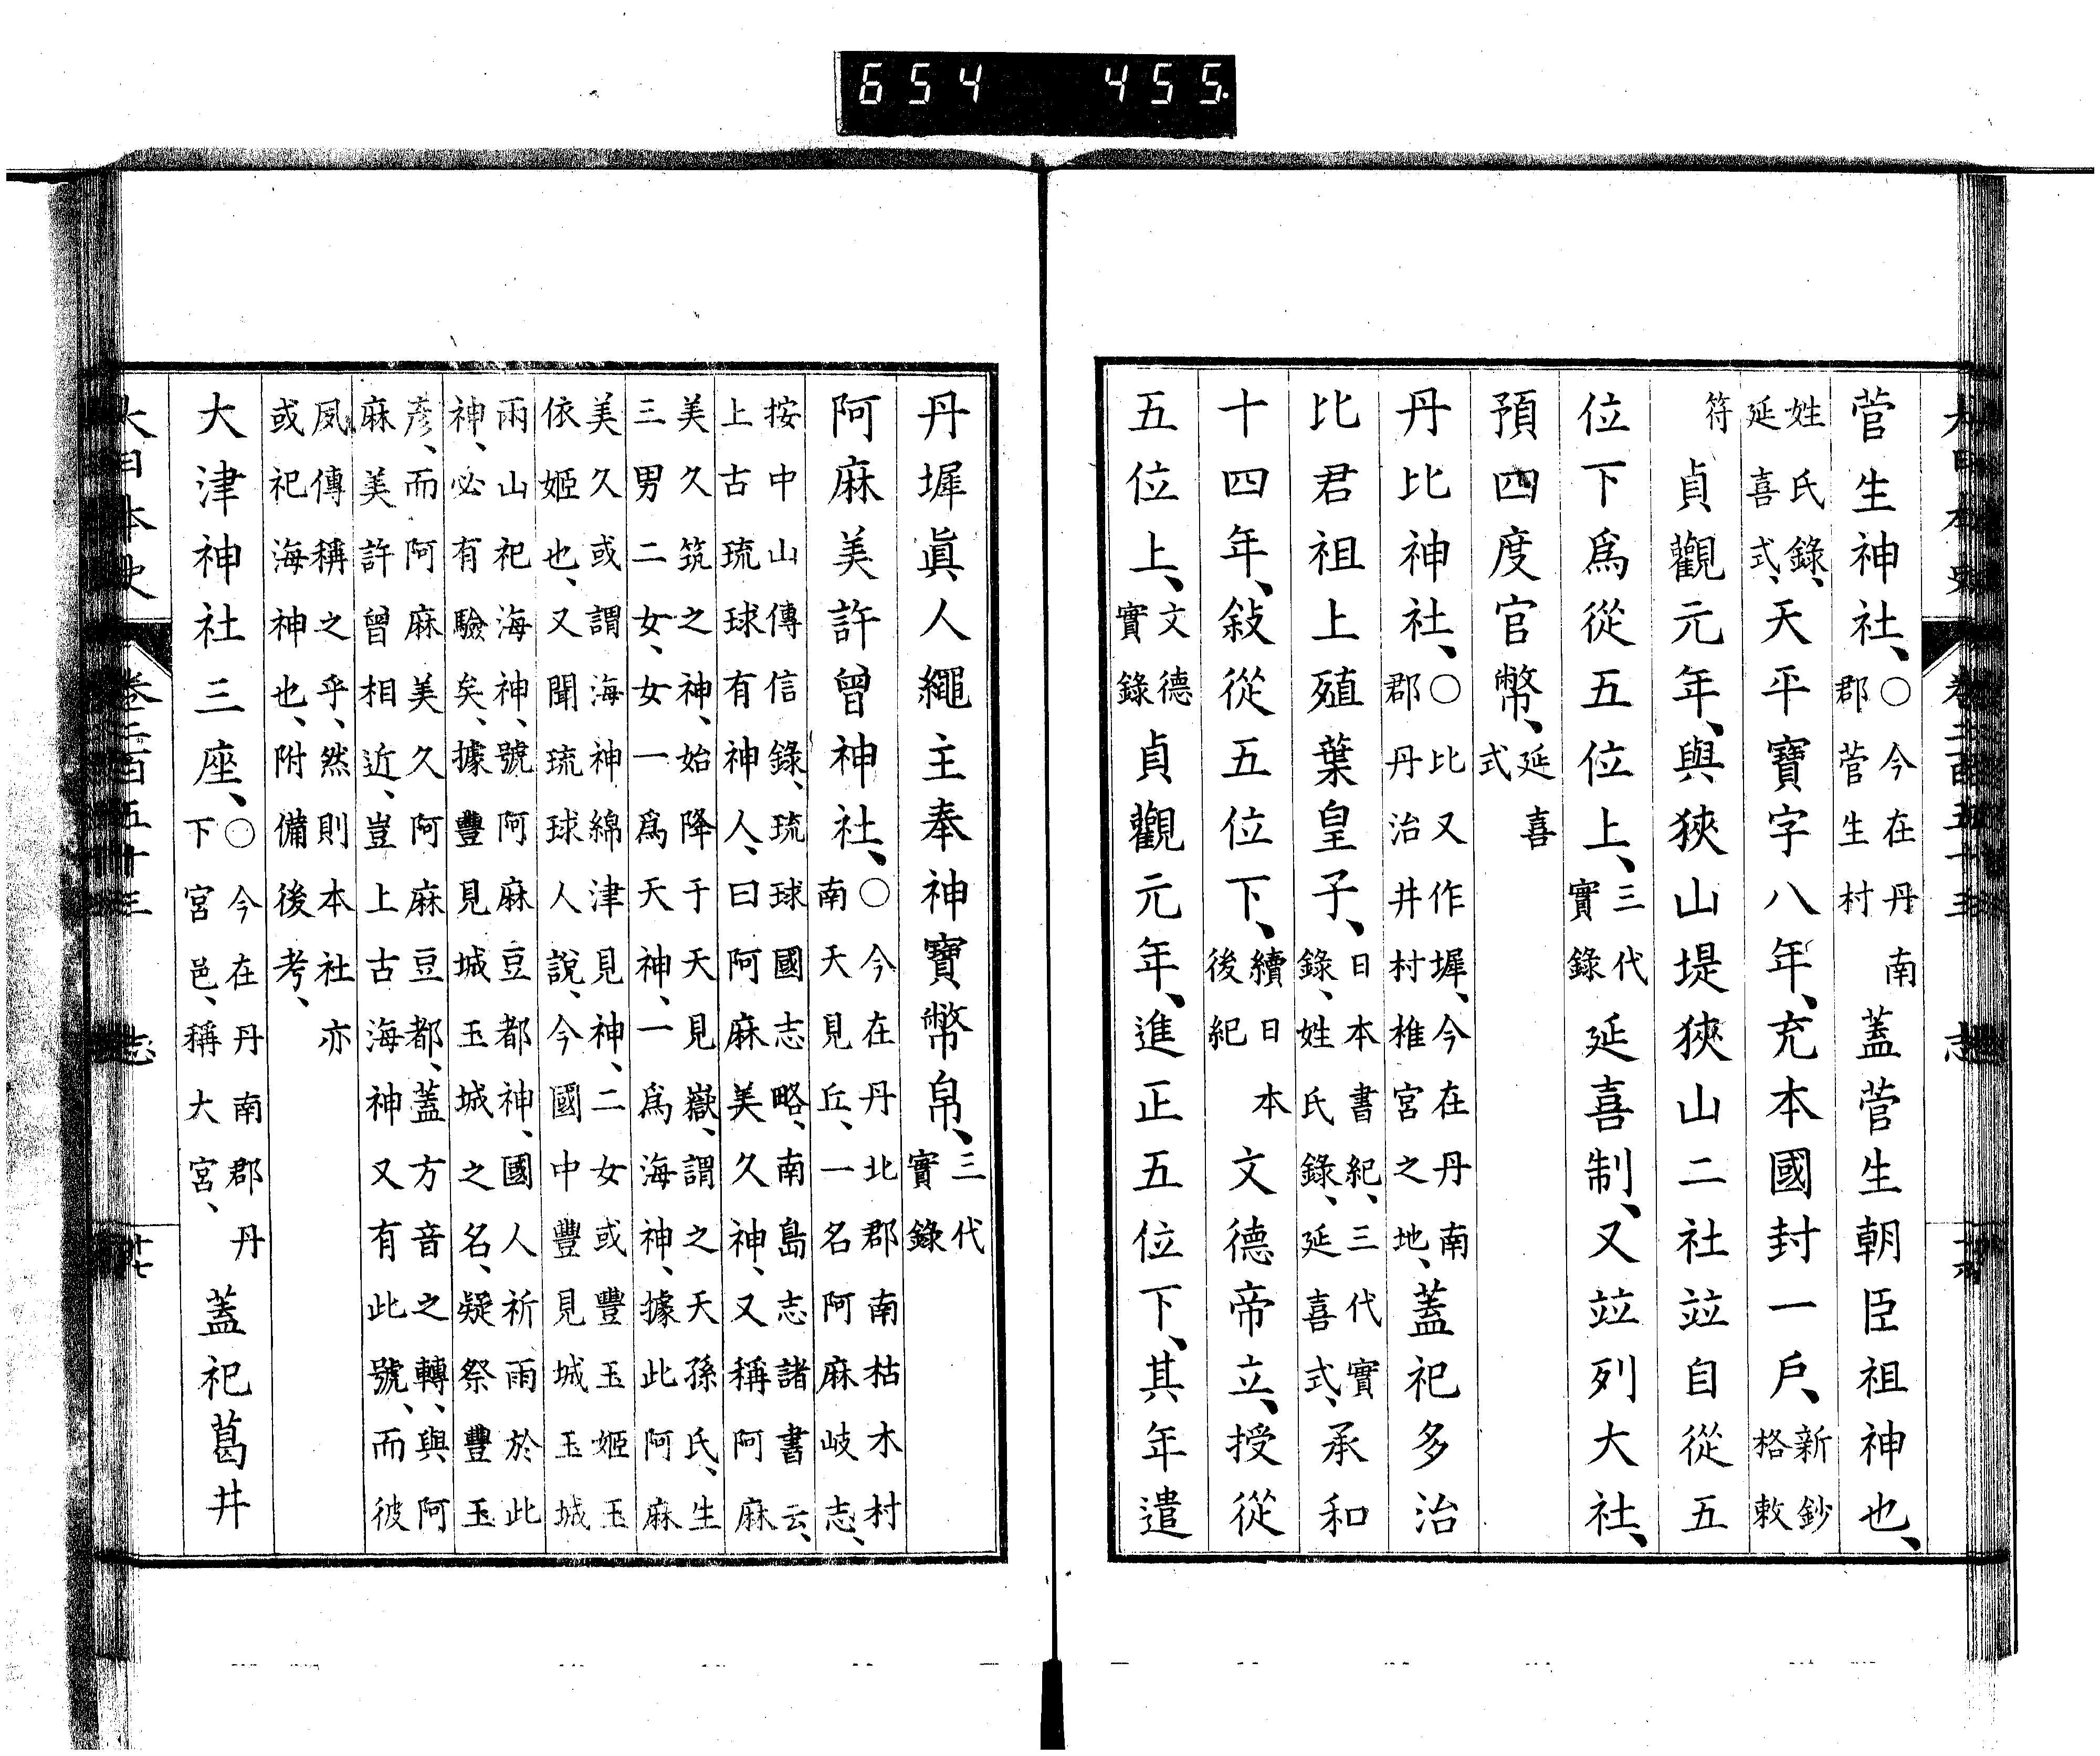 654 455.
菅生神社、○今在丹南郡菅生村蓋菅生朝臣祖神也、
姓氏錄、延喜式、天平寶字八年、充本國封一戶、新鈔格敕
符貞觀元年、與狹山堤狹山二社竝自從五
位下爲從五位上、三代實錄延喜制、又竝列大社、
預四度官幣、延喜式
丹比神社、○比又作墀、今在丹南郡丹治井村椎宮之地、蓋祀多治
比君祖上殖葉皇子、日本書紀、三代實錄、姓氏錄、延喜式、承和
十四年、敍從五位下、續日本後紀文德帝立、授從
五位上、文德實錄貞觀元年、進正五位下、其年遣
丹墀眞人繩主奉神寶幣帛、三代實錄
阿麻美許曾神社、○今在丹北郡南枯木村南天見丘、一名阿麻岐志、
按中山傳信錄、琉球國志略、南島志諸書云、
上古琉球有神人、曰阿麻美久神、又稱阿麻
美久筑之神、始降于天見嶽、謂之天孫氏、生
三男二女、女一爲天神、一爲海神、據此阿麻
美久或謂海神綿津見神、二女或豐玉姬玉
依姬也、又聞琉球人說、今國中豐見城玉城
雨山祀海神、號阿麻豆都神、國人祈雨於此
神、必有驗矣、據豐見城玉城之名、疑祭豐玉
彥、而阿麻美久阿麻豆都、蓋方音之轉、與阿
麻美許曾相近、豈上古海神又有此號、而彼
夙傳稱之乎、然則本社亦
或祀海神也、附備後考、
大津神社三座、○今在丹南郡丹下宮邑、稱大宮、蓋祀葛井
大日本史 卷二百五十三 志 十七